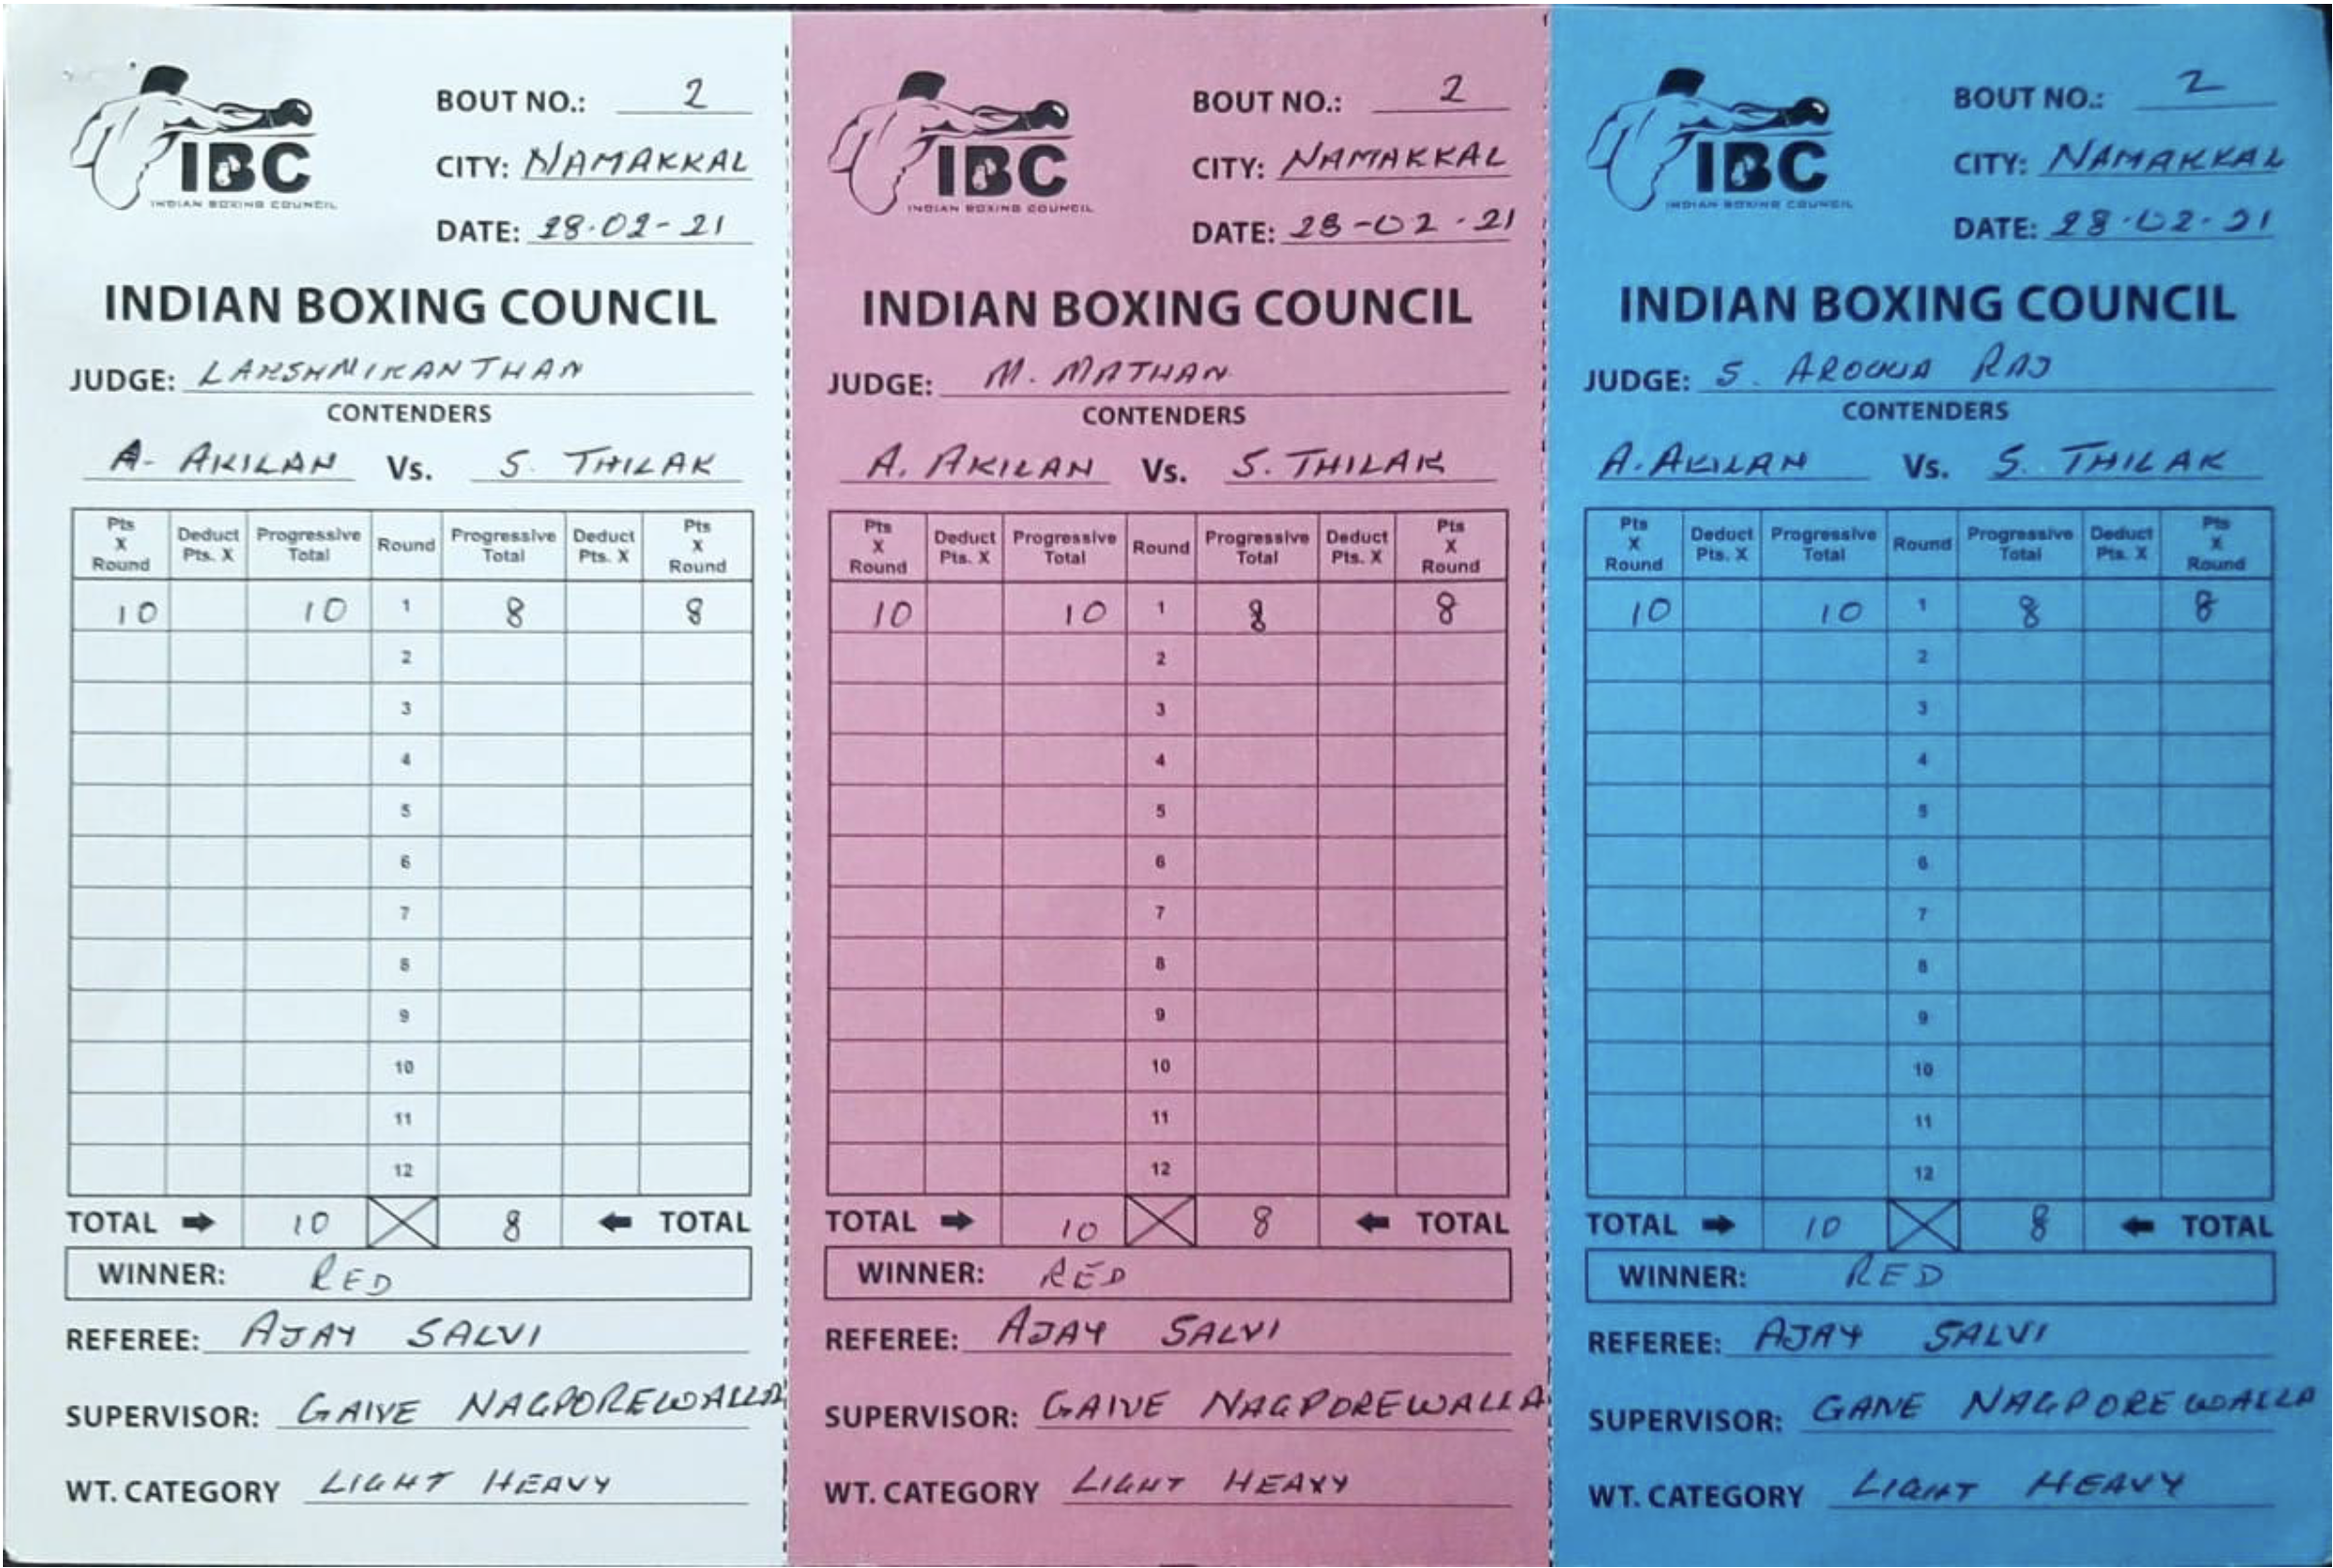 BOUT NO.: 2
IBC
INDIAN BOXING COUNCIL
CITY: NAMAKKAL
DATE: 28-02-21
INDIAN BOXING COUNCIL
JUDGE: LAKSHMIKANTHAN
CONTENDERS
A. AKILAN Vs. S. THILAK
Pts X Round Deduct Pts. X Progressive Total Round Progressive Total Deduct Pts. X Pts X Round
10 10 1 8 8
2
3
4
5
6
7
8
9
10
11
12
TOTAL 10 8 TOTAL
WINNER: RED
REFEREE: AJAY SALVI
SUPERVISOR: GANE NAGPOREWALLA
WT. CATEGORY LIGHT HEAVY
BOUT NO.: 2
IBC
INDIAN BOXING COUNCIL
CITY: NAMAKKAL
DATE: 28-02-21
INDIAN BOXING COUNCIL
JUDGE: M. MATHAN
CONTENDERS
A. AKILAN Vs. S. THILAK
Pts X Round Deduct Pts. X Progressive Total Round Progressive Total Deduct Pts. X Pts X Round
10 10 1 8 8
2
3
4
5
6
7
8
9
10
11
12
TOTAL 10 8 TOTAL
WINNER: RED
REFEREE: AJAY SALVI
SUPERVISOR: GANE NAGPOREWALLA
WT. CATEGORY LIGHT HEAVY
BOUT NO.: 2
IBC
INDIAN BOXING COUNCIL
CITY: NAMAKKAL
DATE: 28-02-21
INDIAN BOXING COUNCIL
JUDGE: S. AROKIA RAJ
CONTENDERS
A. AKILAN Vs. S. THILAK
Pts X Round Deduct Pts. X Progressive Total Round Progressive Total Deduct Pts. X Pts X Round
10 10 1 8 8
2
3
4
5
6
7
8
9
10
11
12
TOTAL 10 8 TOTAL
WINNER: RED
REFEREE: AJAY SALVI
SUPERVISOR: GANE NAGPOREWALLA
WT. CATEGORY LIGHT HEAVY